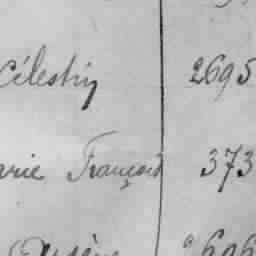 Célestin 2695
arie François 373